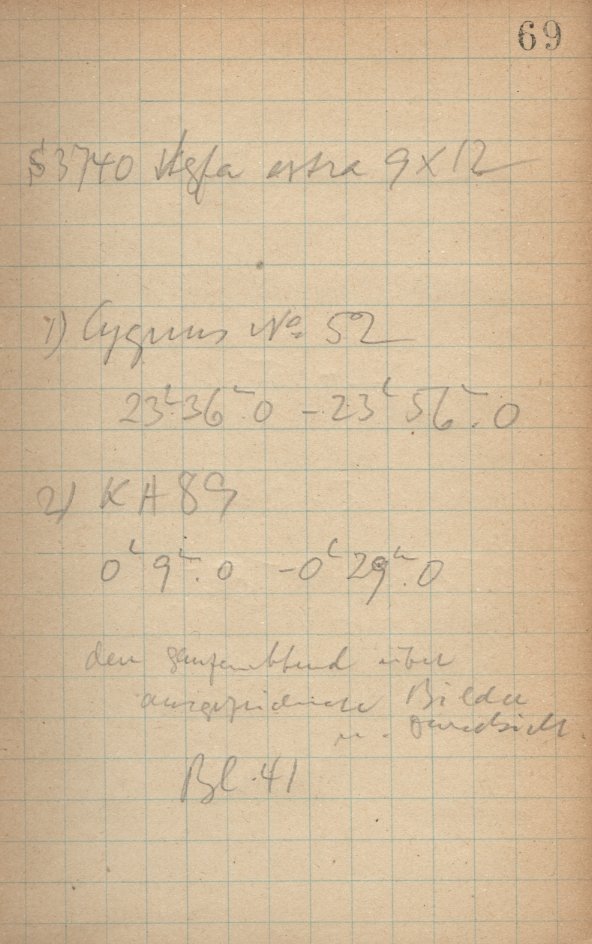 69
S 3740 Agfa astra 9x12
1) Cygnus No 52
23h36m.0 – 23h56m.0
2) KA 89
0h9m.0 – 0h29m.0
den ganzen Abend über
ausgezeichnete Bilder
u. Durchsicht.
Bl. 41